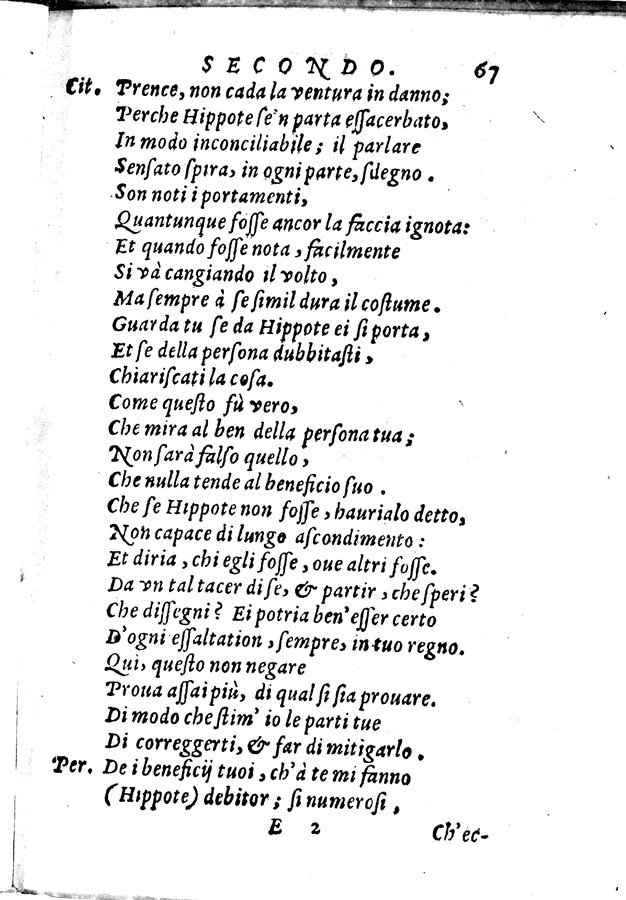 SECONDO. 67
Cit. Prence, non cada la ventura in danno;
Perche Hippote se'n parta eſſacerbato,
In modo inconciliabile; il parlare
Senſato ſpira, in ogni parte, ſdegno.
Son noti i portamenti,
Quantunque foſſe ancor la faccia ignota:
Et quando foſſe nota, facilmente
Si và cangiando il volto,
Ma ſempre à ſe ſimil dura il coſtume.
Guarda tu ſe da Hippote ei ſi porta,
Et ſe della perſona dubbitaſti,
Chiariſcati la coſa.
Come queſto fù vero,
Che mira al ben della perſona tua;
Non ſarà falſo quello,
Che nulla tende al beneficio ſuo.
Che ſe Hippote non foſſe, haurialo detto,
Non capace di lungo aſcondimento:
Et diria, chi egli foſſe, oue altri foſſe.
Da vn tal tacer di ſe, & partir, che ſperi?
Che diſſegni? Ei potria ben'eſſer certo
D'ogni eſſaltation, ſempre, in tuo regno.
Qui, queſto non negare
Proua aſſai più, di qual ſi ſia prouare.
Di modo che ſtim' io le parti tue
Di correggerti, & far di mitigarlo.
Per. De i beneficij tuoi, ch'à te mi fanno
(Hippote) debitor; ſi numeroſi,
E 2 Ch'ec-